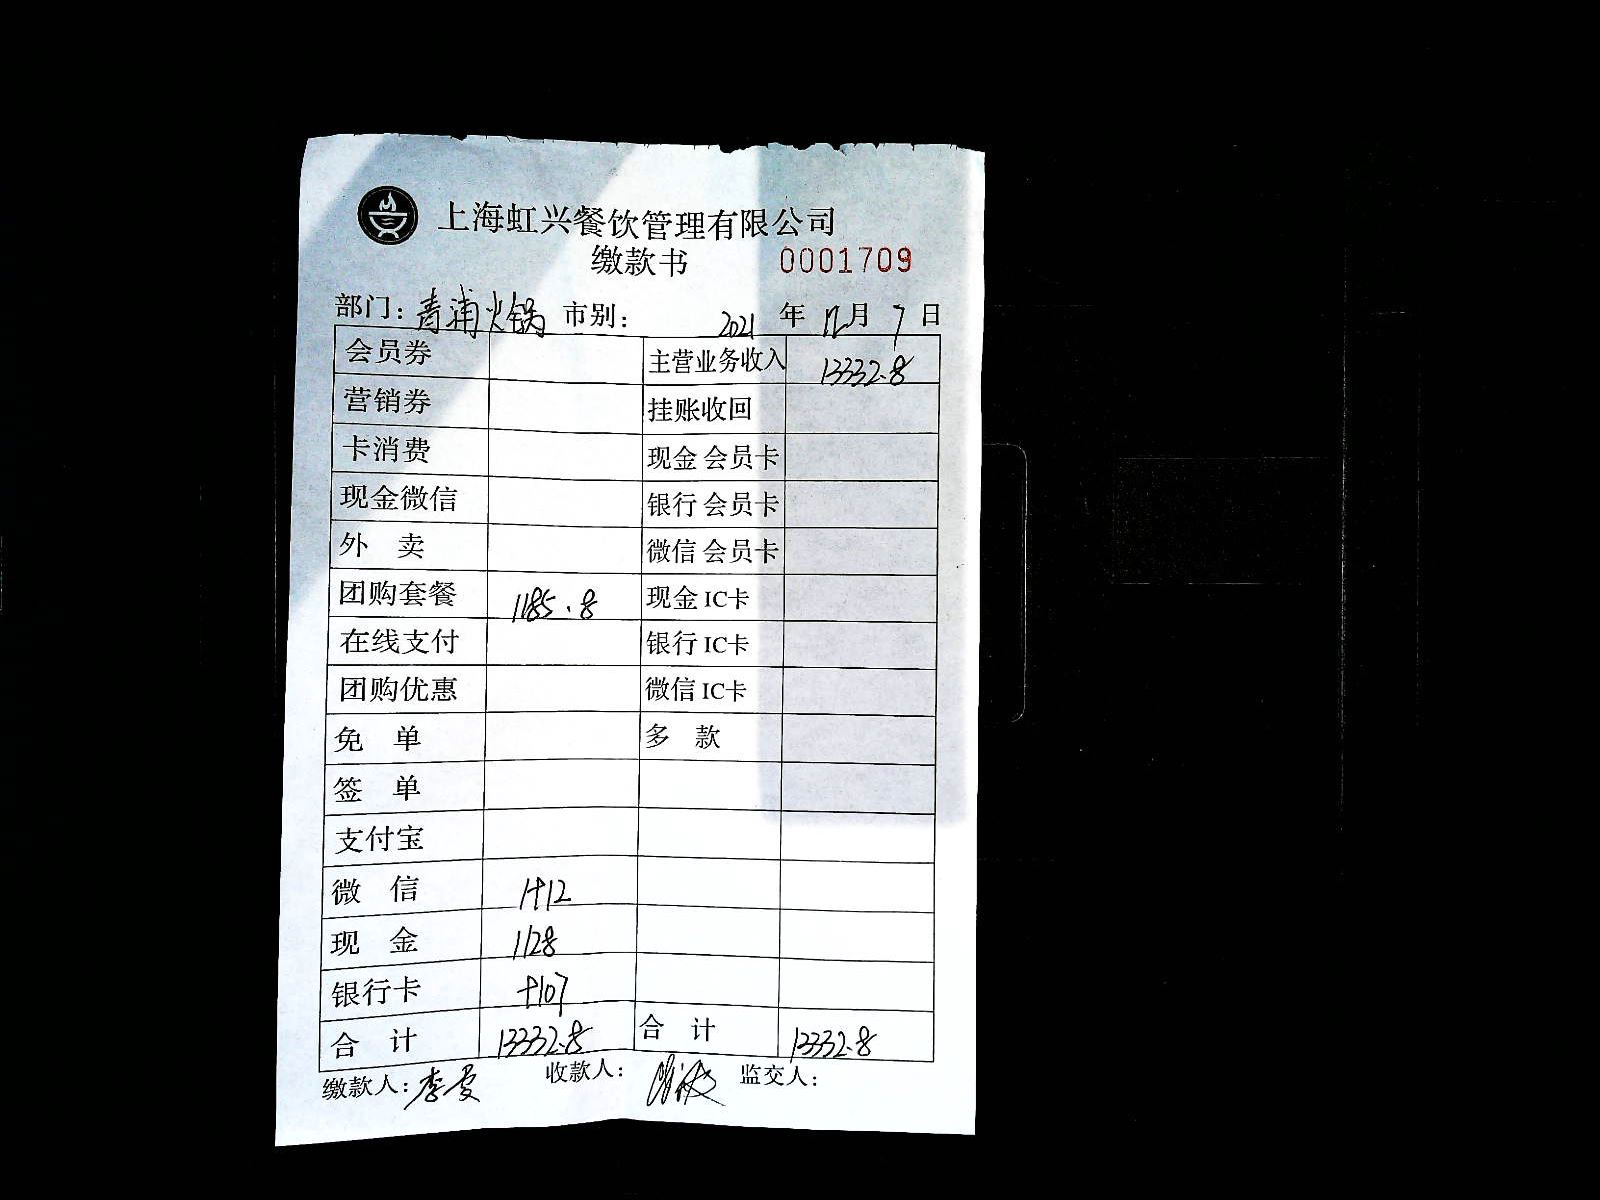 上海虹兴餐饮管理有限公司
缴款书 0001709
部门：青浦火锅 市别： 2021 年 12 月 7 日
会员券 主营业务收入 13332.8
营销券 挂账收回
卡消费 现金 会员卡
现金微信 银行 会员卡
外 卖 微信 会员卡
团购套餐 1185.8 现金 IC卡
在线支付 银行 IC卡
团购优惠 微信 IC卡
免 单 多 款
签 单
支付宝
微 信 1912
现 金 1128
银行卡 9107
合 计 13332.8 合 计 13332.8
缴款人：李 收款人： 监交人：